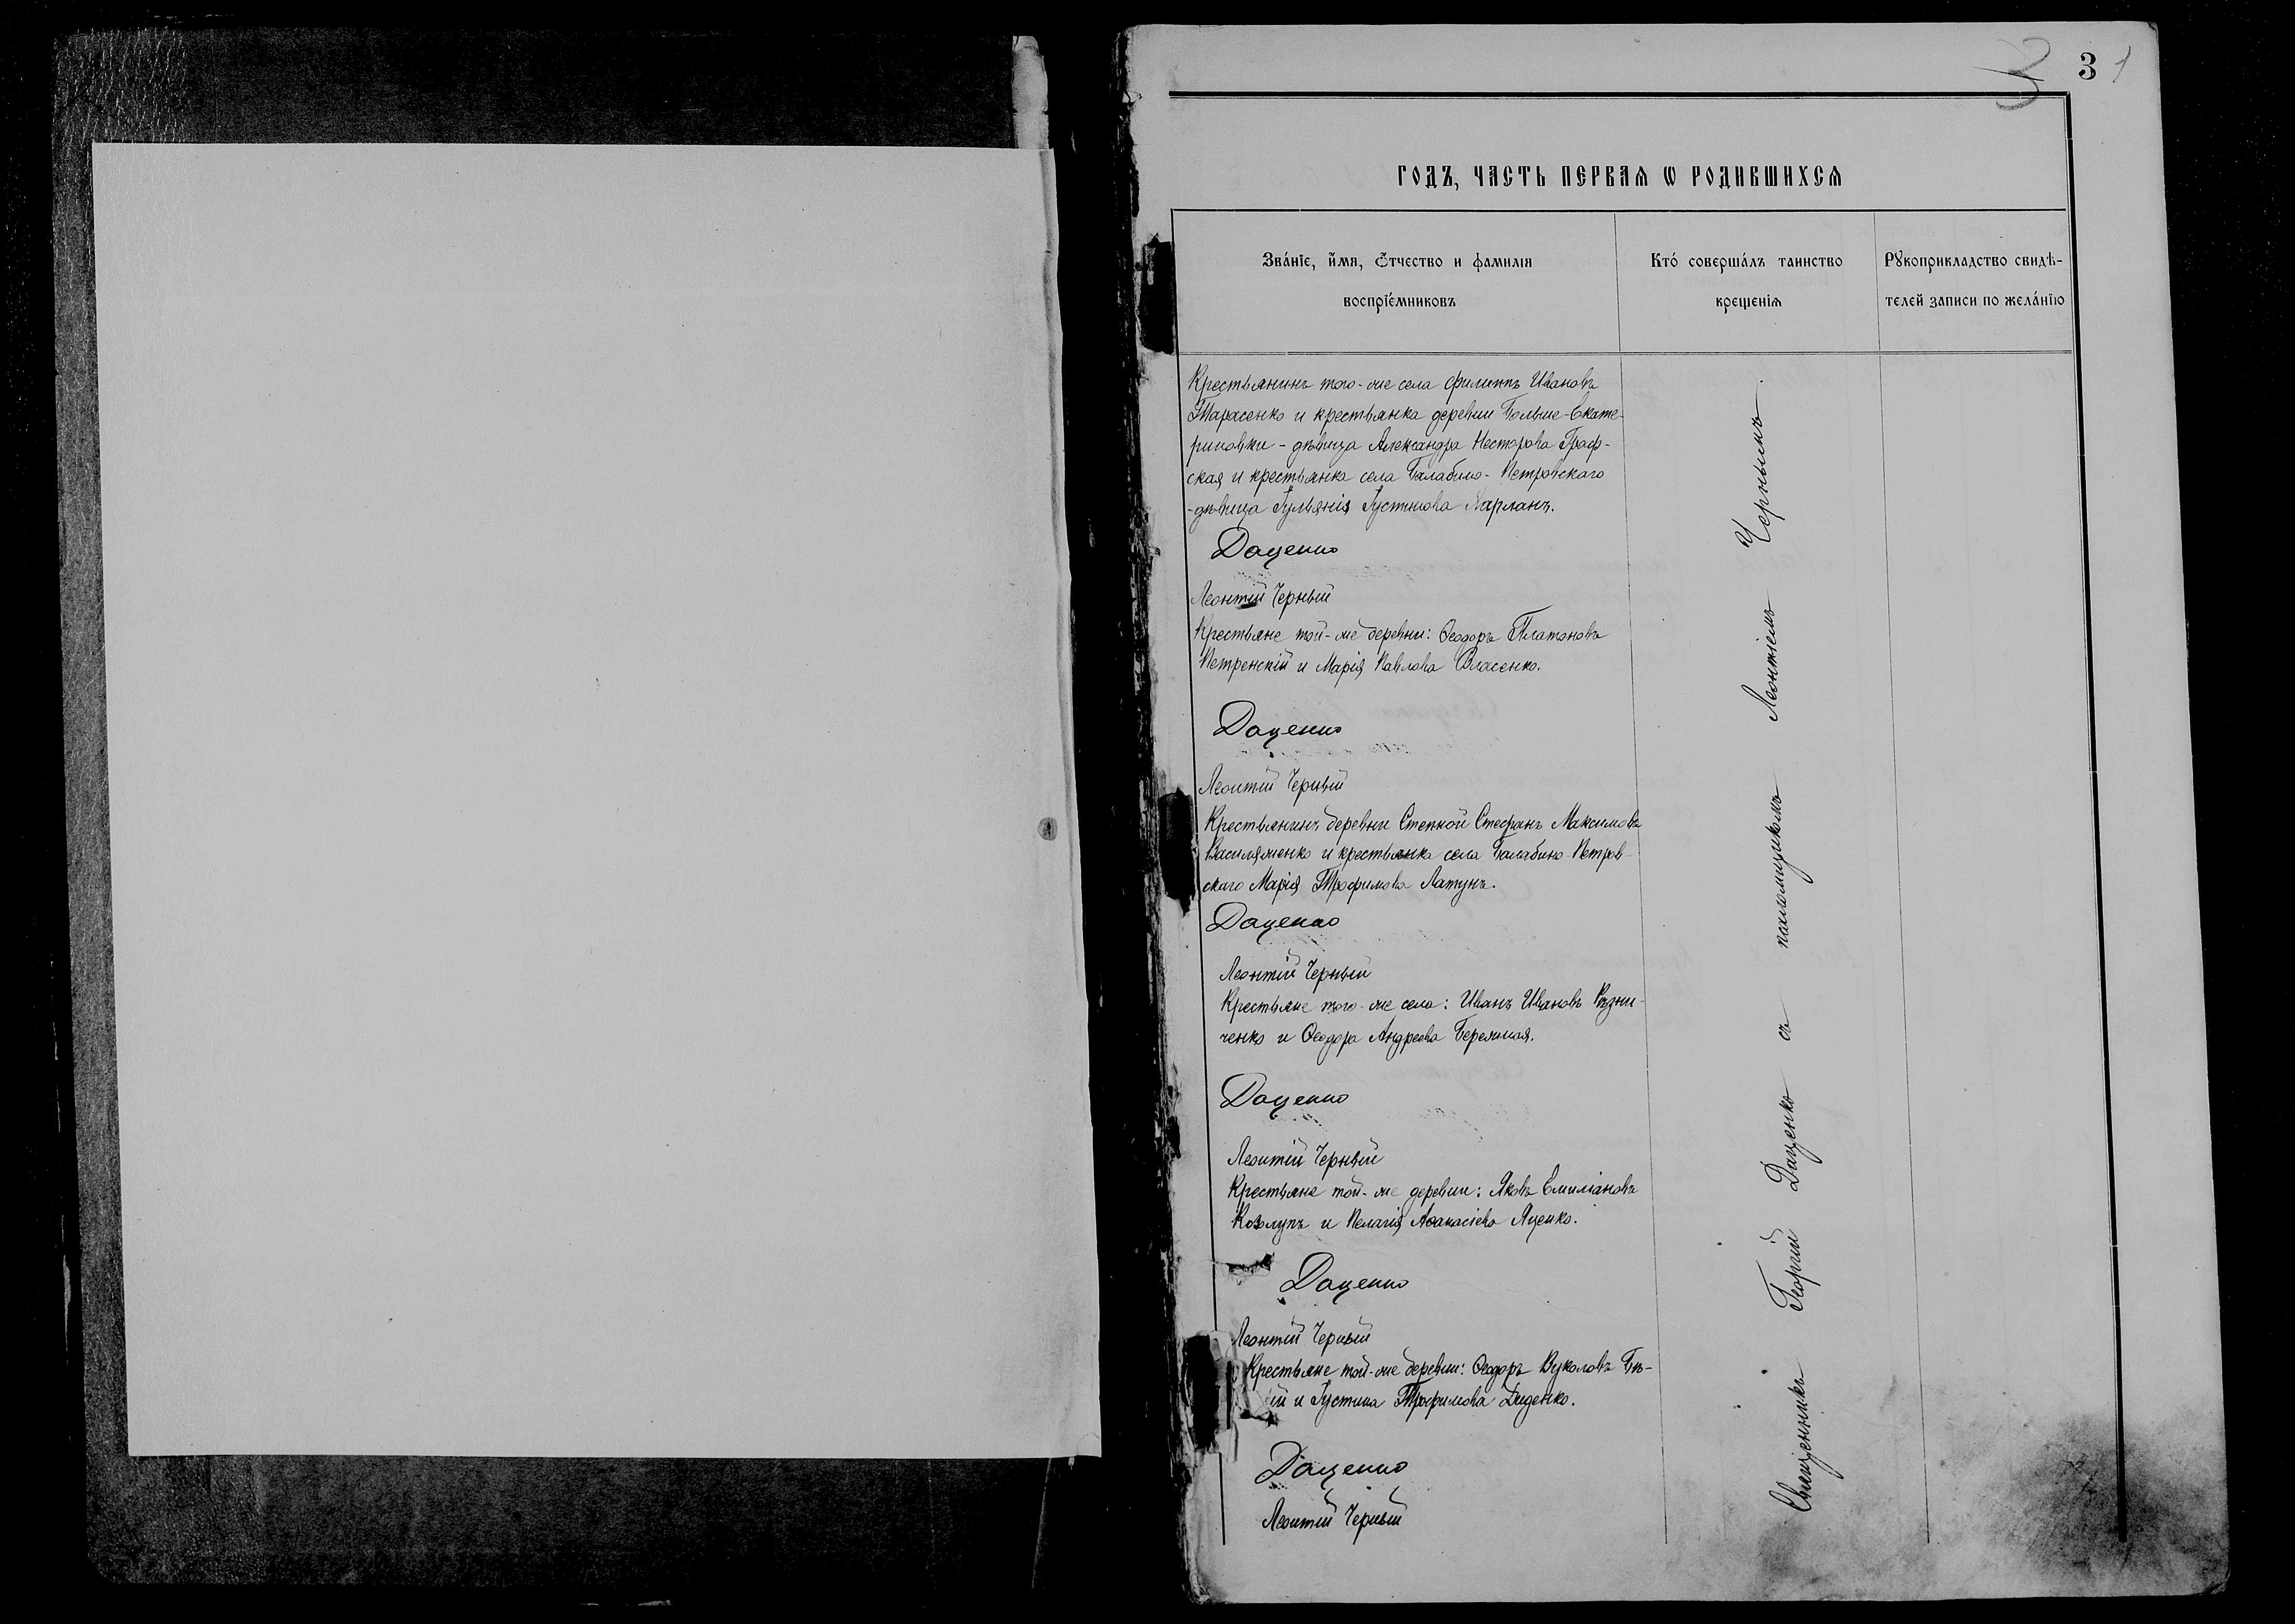 3 3 1
ГОДЪ, ЧАСТЬ ПЕРВАЯ Ѡ РОДИВШИХСЯ
Зва́нїе, и҆́мя, ѻ҆́тчество и фамилїя
воспрїе́мниковъ
Кто́ соверша́лъ таинство
крещенїѧ
Рꙋкоприкладство свидѣ-
телей записи по жела́нїю
Крестьянинъ того-же села Филиппъ Ивановъ
Тарасенко и крестьянка деревни Больше-Екате-
риновки - дѣвица Александра Несторова Граф-
ская и крестьянка села Балабино-Петровскаго
-дѣвица Іульянія Іустинова Харланъ.
Даценко
Леонтій Черный
Крестьяне той-же деревни: Ѳеодоръ Платоновъ
Петренскій и Марія Павлова Власенко.
Даценко
Леонтій Черный
Крестьянинъ деревни Степной Стефанъ Максимовъ
и крестьянка села Балабино-Петров-
скаго Марія Трофимова Латунъ.
Даценко
Леонтій Черный
Крестьяне того-же села: Иванъ Ивановъ Рѣзни-
ченко и Ѳеодора Андреева Бережная.
Даценко
Леонтій Черный
Крестьяне той-же деревни: Яковъ Емиліановъ
Козолупъ и Пелагія Аѳанасіева Яценко.
Даценко
Леонтій Черный
Крестьяне той-же деревни: Ѳеодоръ Вуколовъ Бѣ-
ій и Іустина Трофимова Диденко.
Даценко
Леонтій Черный
Священникъ Георгій Даценко съ псаломщикомъ Леонтіемъ Чернымъ.